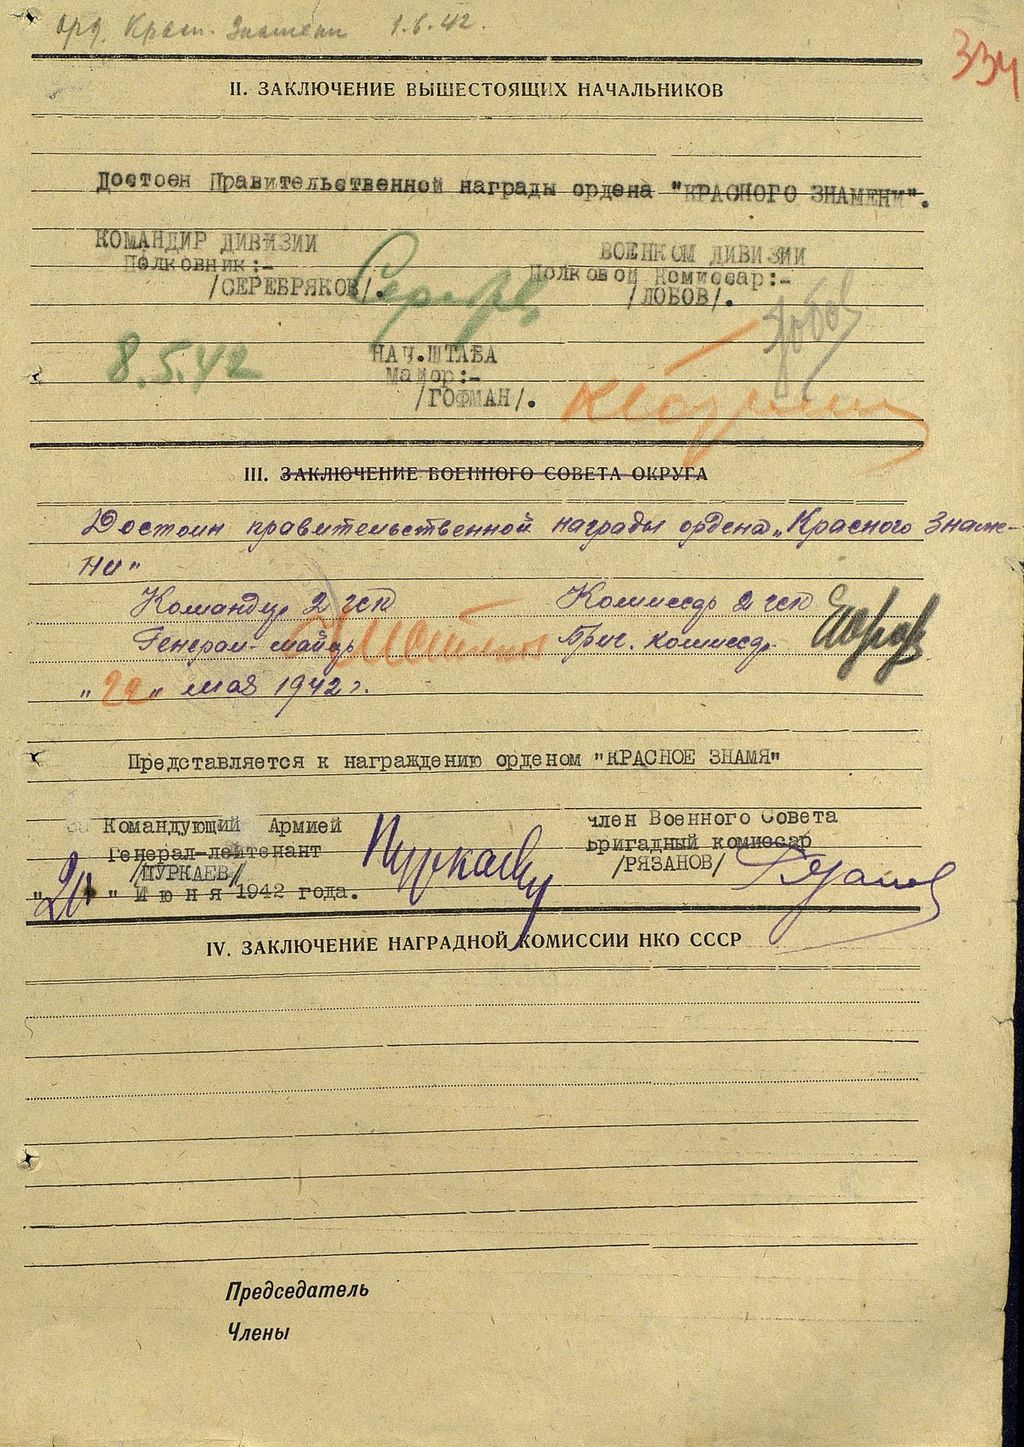 орд. Красн. Знамени 1.6.42.
334
II. ЗАКЛЮЧЕНИЕ ВЫШЕСТОЯЩИХ НАЧАЛЬНИКОВ
Достоен Правительственной награды ордена "КРАСНОГО ЗНАМЕНИ".
КОМАНДИР ДИВИЗИИ
Полковник:-
/СЕРЕБРЯКОВ/.
ВОЕНКОМ ДИВИЗИИ
Полковой Комиссар:-
/ЛОБОВ/.
Лобов
8.5.42
НАЧ.ШТАБА
Майор:-
/ГОФМАН/.
III. ЗАКЛЮЧЕНИЕ ВОЕННОГО СОВЕТА ОКРУГА
Достоин правительственной награды ордена „Красного Знаме-
ни"
Командир 2 гск
Генерал-майор
Комиссар 2 гск
Бриг. комиссар
„22" мая 1942 г.
Представляется к награждению орденом "КРАСНОЕ ЗНАМЯ"
Командующий Армией
Генерал-лейтенант
/ПУРКАЕВ/
Пуркаев
"20" Июня 1942 года.
Член Военного Совета
Бригадный комиссар
/РЯЗАНОВ/
Рязанов
IV. ЗАКЛЮЧЕНИЕ НАГРАДНОЙ КОМИССИИ НКО СССР
Председатель
Члены